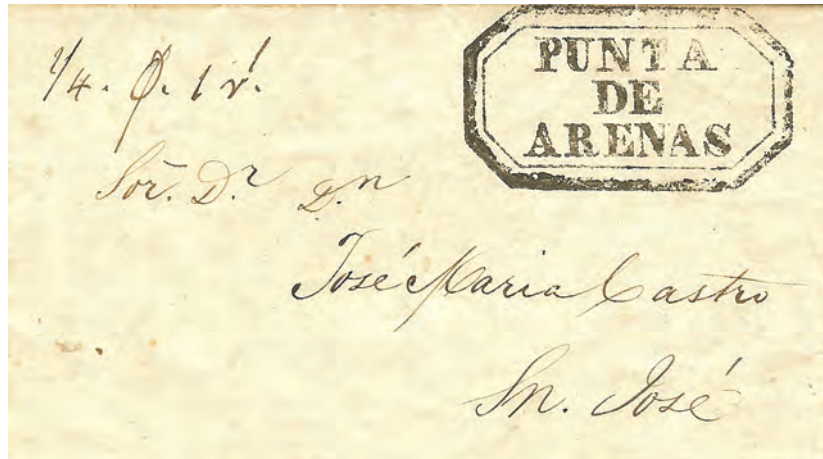 1/4. O. 1 rl.
PUNTA
DE
ARENAS
Sor. Dr. Dn
José Maria Castro
Sn. José